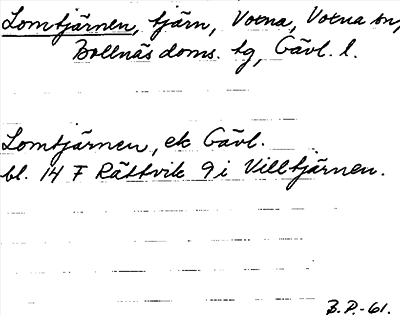 Lomtjärnen, tjärn, Voxna, Voxna sn,
Bollnäs doms. tg, Gävl. l.
Lomtjärnen, ek Gävl.
bl. 14 F Rättvik 9 i Villtjärnen.
B.P.-61.